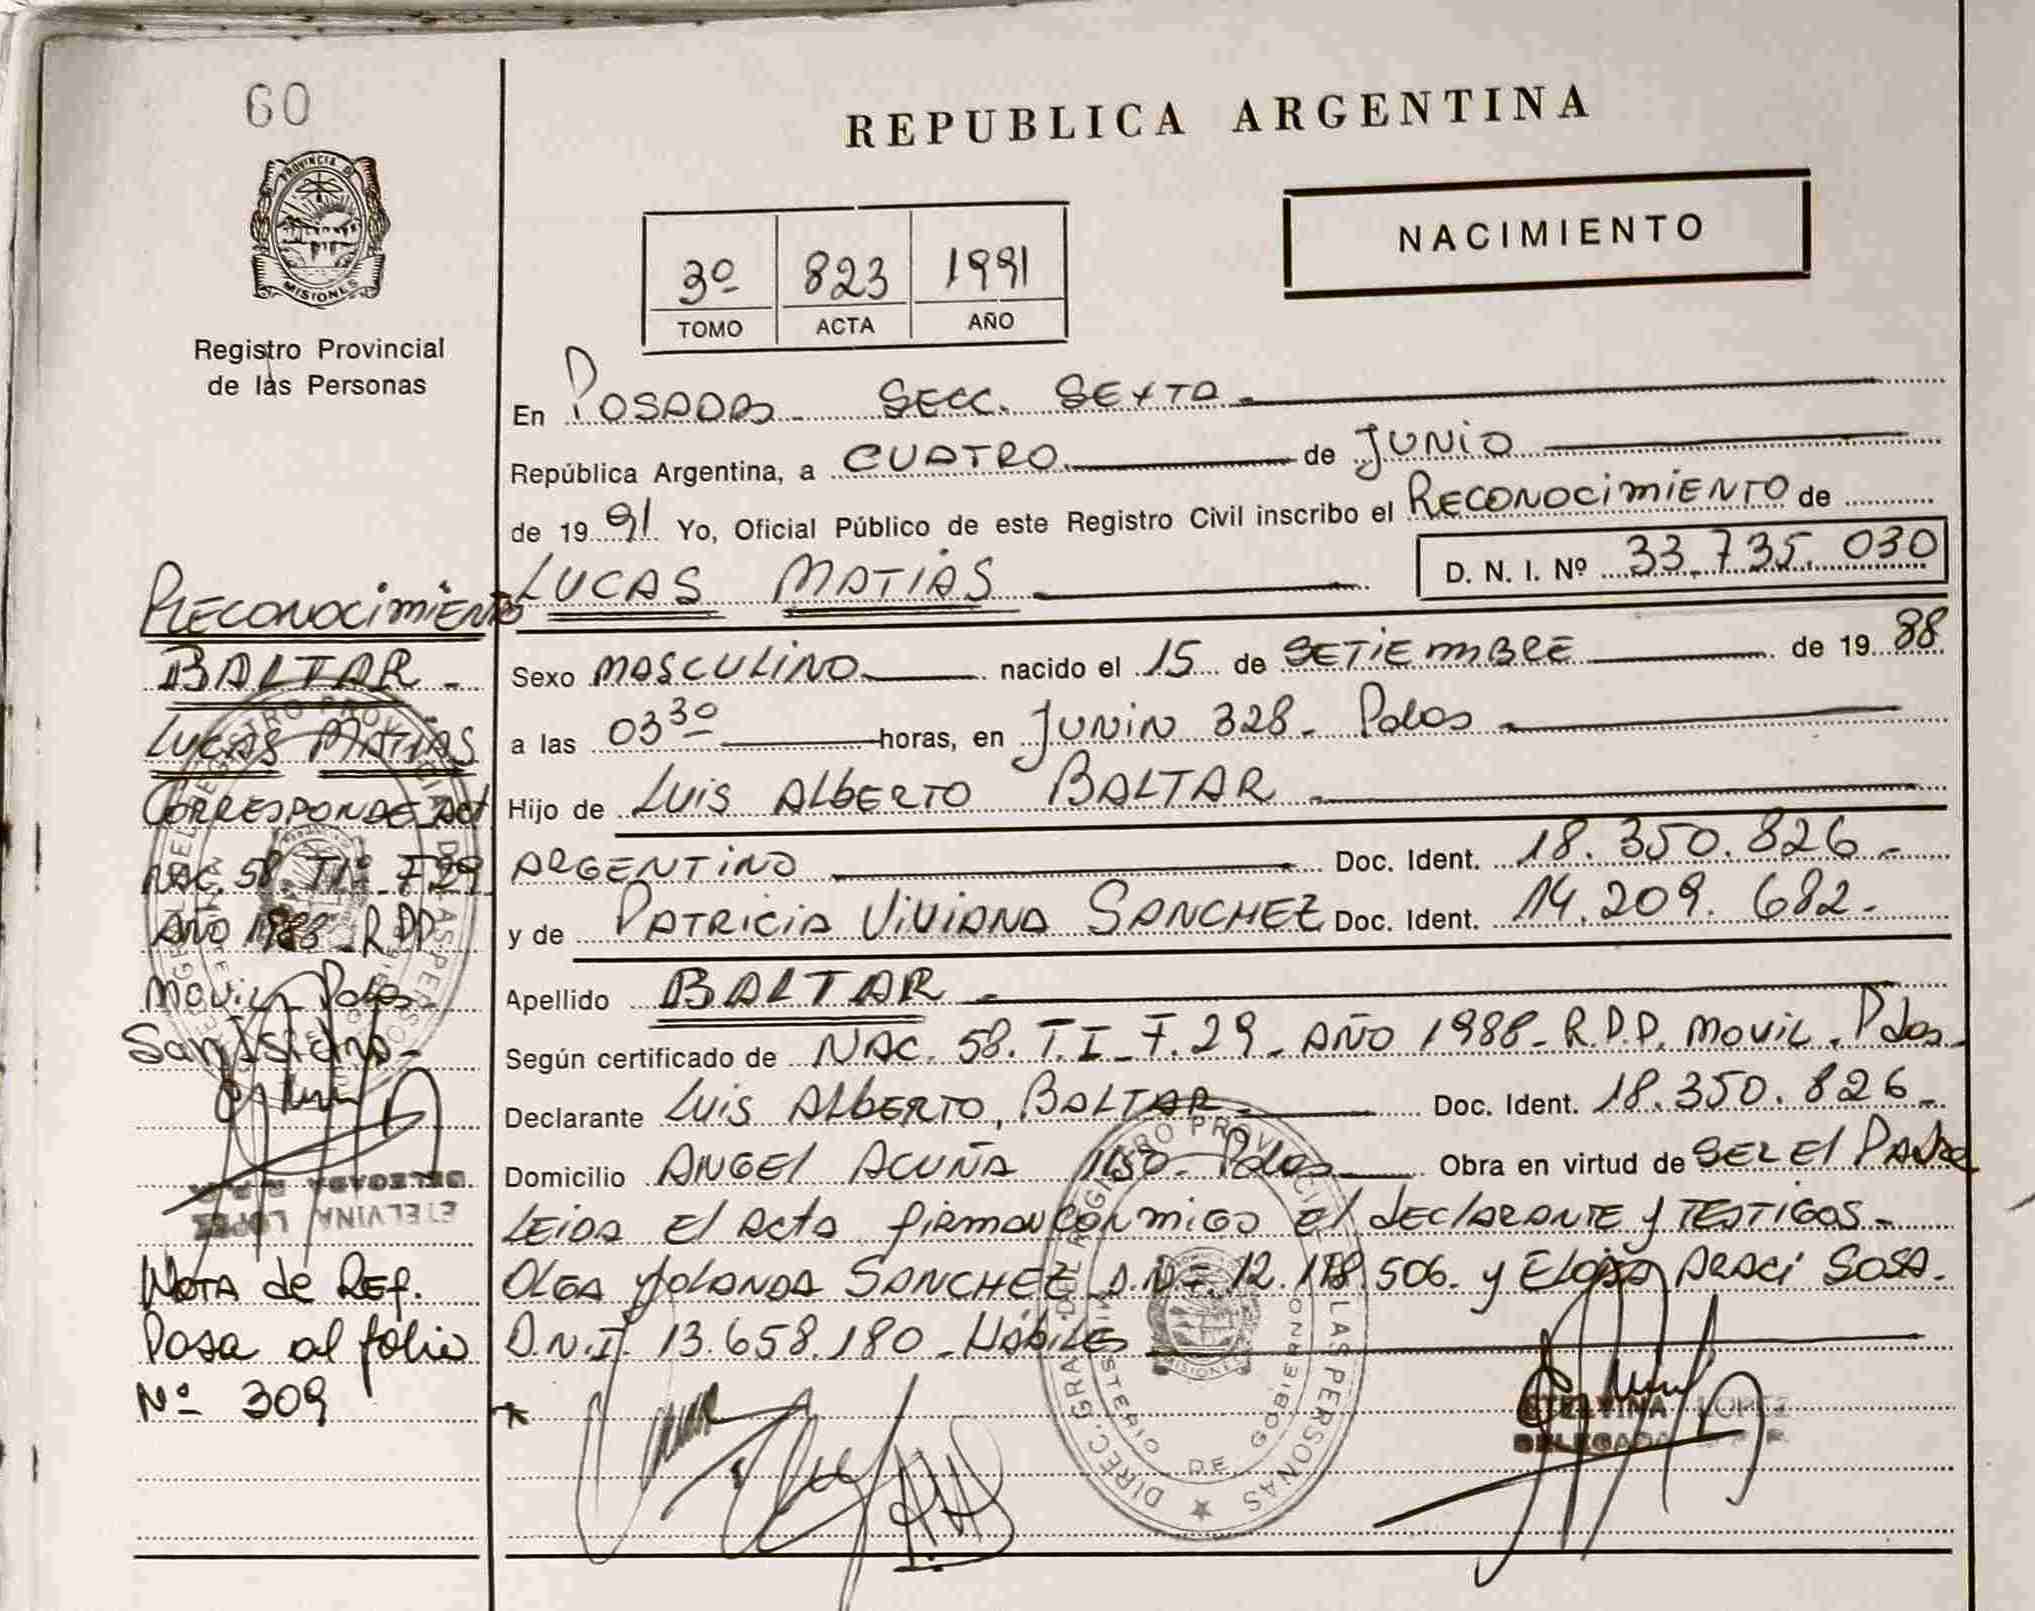 60
PROVINCIA DE
MISIONES
Registro Provincial
de las Personas
REPUBLICA ARGENTINA
NACIMIENTO
3º 823 1991
TOMO ACTA AÑO
En Posadas - Secc. Sexta -
República Argentina, a CUATRO de JUNIO
de 19 91 Yo, Oficial Público de este Registro Civil inscribo el RECONOCIMIENTO de
LUCAS MATIAS
D. N. I. Nº 33.735.030
Sexo MASCULINO nacido el 15 de SETIEMBRE de 19 88
a las 03 30 horas, en JUNIN 328 - Pdas
Hijo de Luis ALbERTO BALTAR
ARGENTINO Doc. Ident. 18.350.826 -
y de PATRICIA VIVIANA SANCHEZ Doc. Ident. 14.209.682 -
Apellido BALTAR -
Según certificado de NAC. 58. T. I - F. 29 - AÑO 1988 - R.D.P. MOVIL. Pdas -
Declarante Luis ALbERTO, BALTAR - Doc. Ident. 18.350.826 -
Domicilio ANGEL ACUÑA 1150 - Pdas Obra en virtud de SER El PADRE
LEIDA El ActA firman conmigo el dEClARANTE y TESTIGOS -
OLGA YOLANDA SANCHEZ D.N.I. 12.118.506. y ELOISA ARACI SOSA -
D.N.I. 13.658.180 - HábiLES
ETELVINA LOPEZ
DELEGADA R.P.P.
DIREC. GRAL. DEL REGISTRO PROVINCIAL DE LAS PERSONAS
MINISTERIO DE GOBIERNO
MISIONES
RECONOCIMIENTO
BALTAR -
LUCAS MATIAS
CORRESPONDE Act
NAC. 58. T1º F 29
AÑO 1988 - R.D.P.
Movil - Pdas
San Isidro -
DELEGADA R.P.P.
ETELVINA LOPEZ
NOTA de REF.
Pasa al folio
Nº 309